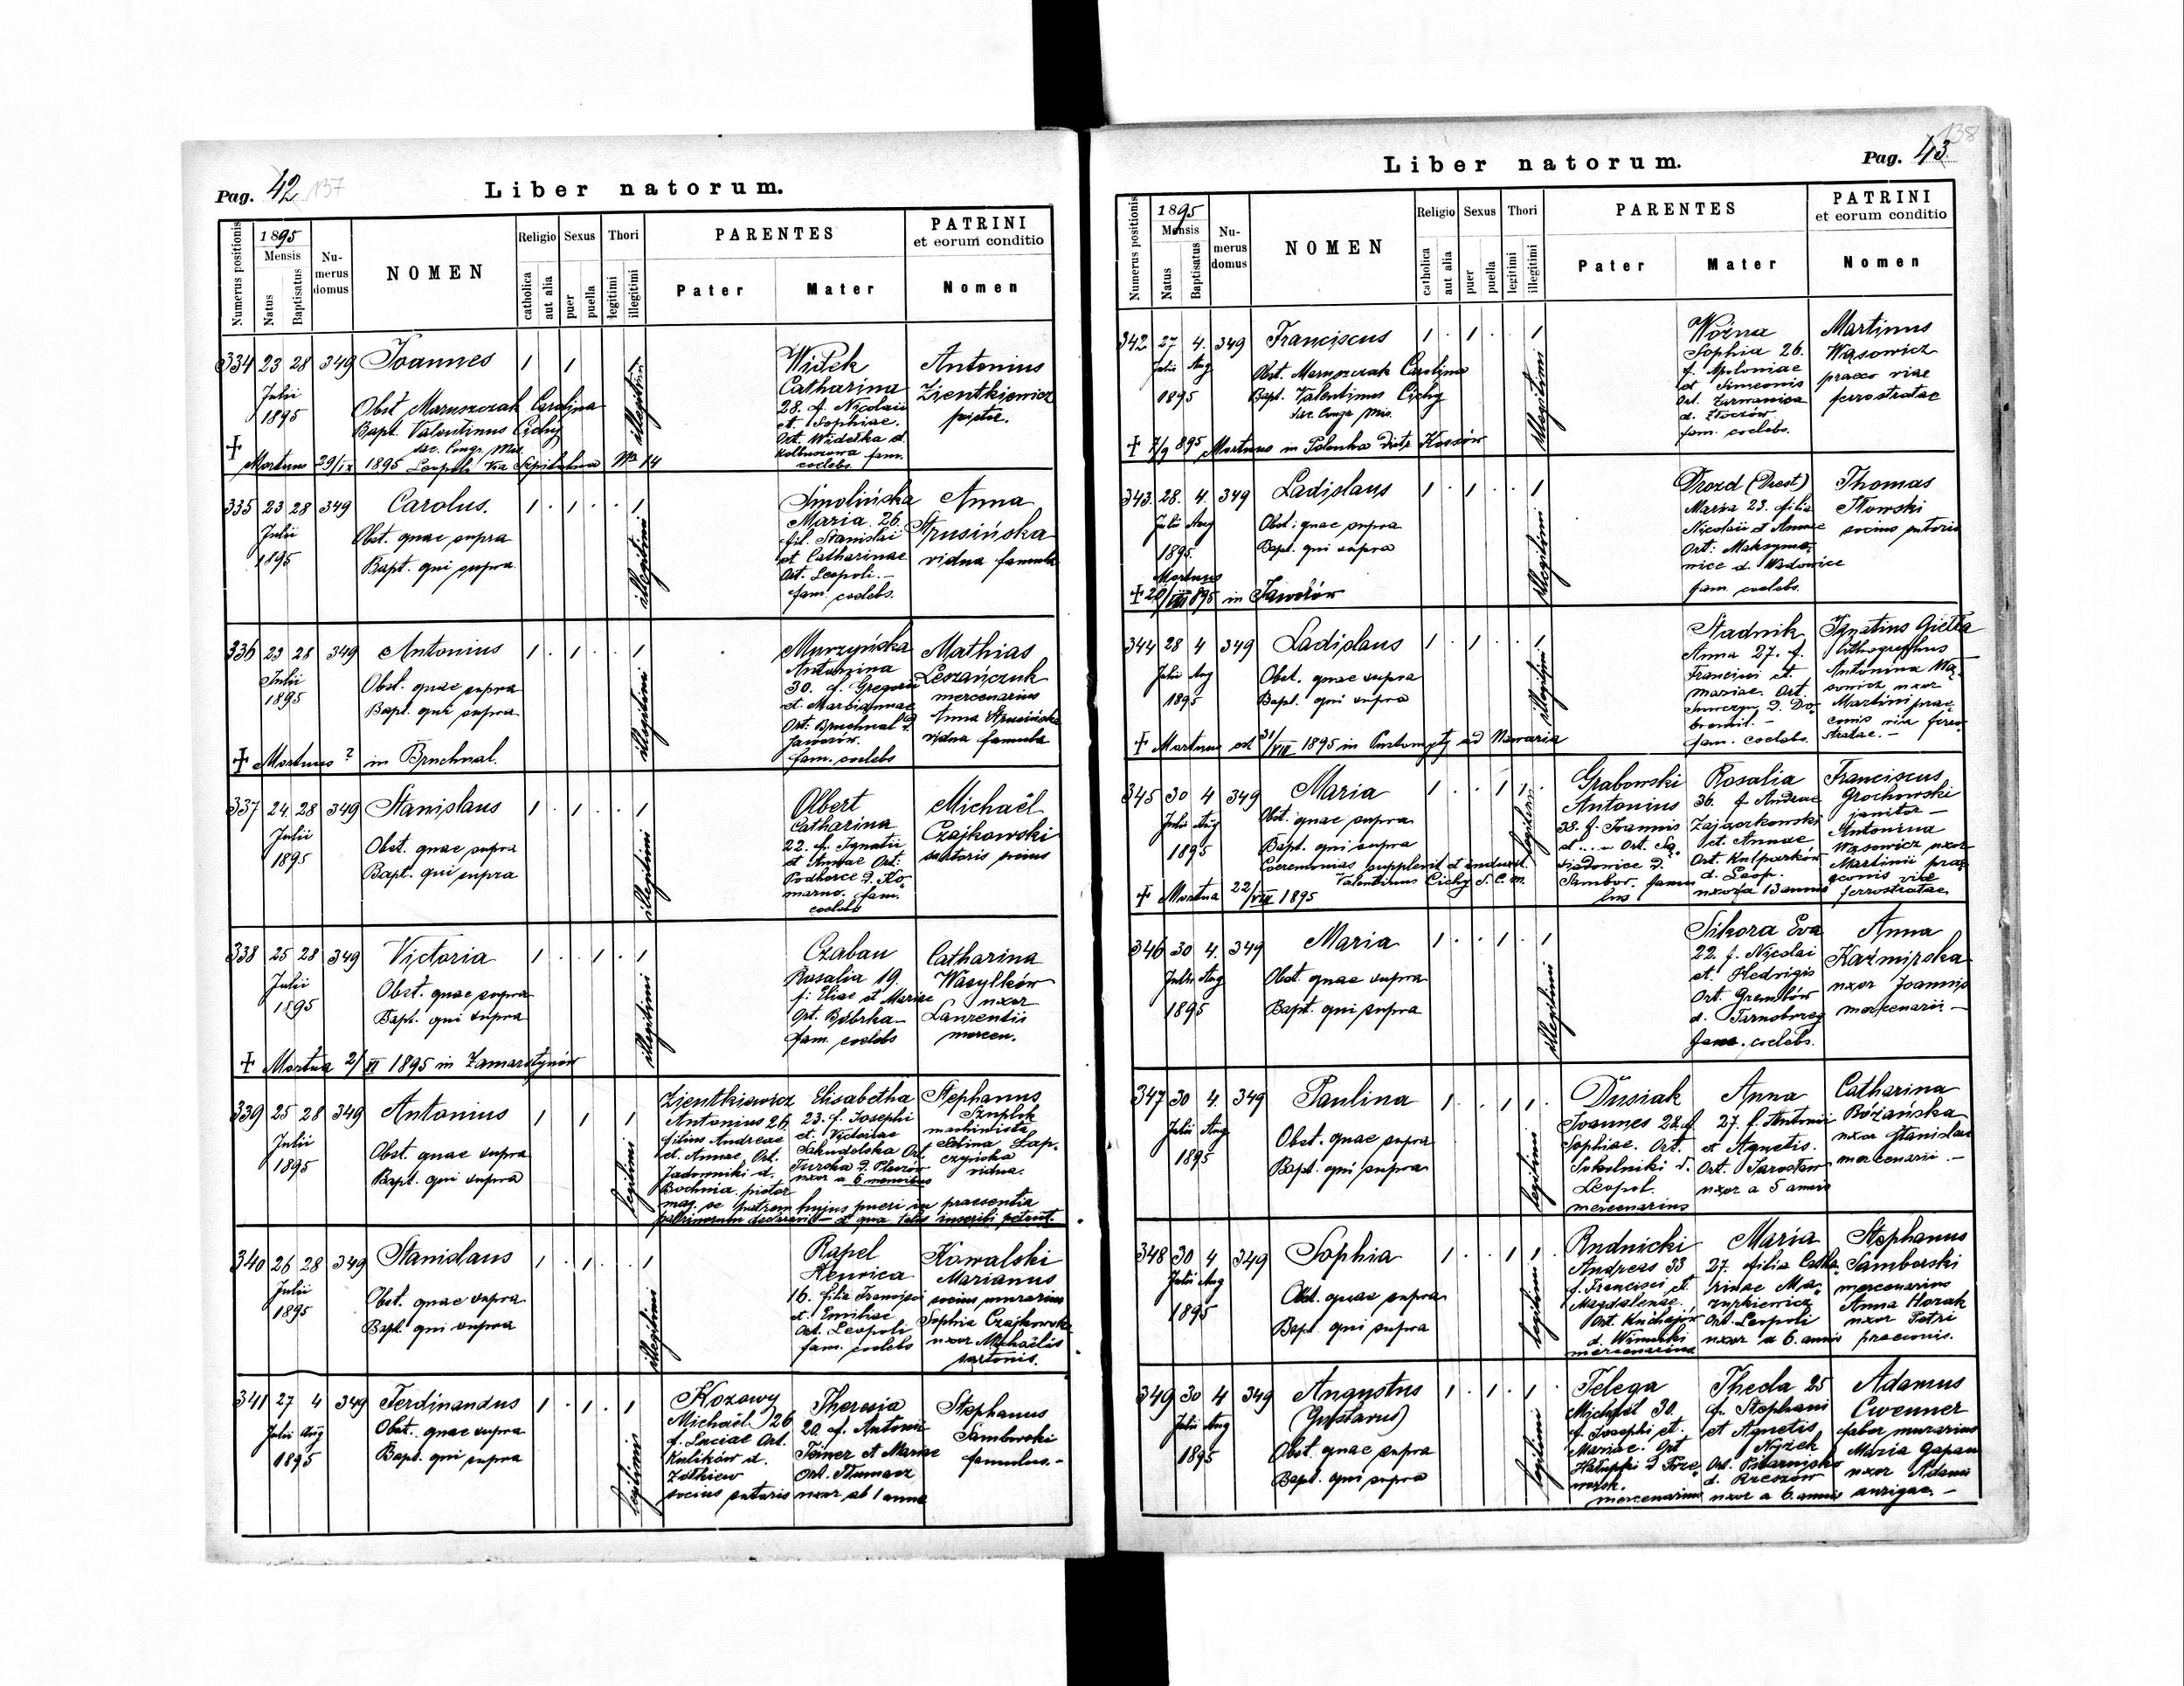 Pag. 42 137
Liber natorum.
Numerus positionis
1895
Mensis
Natus
Baptisatus
Nu-
merus
domus
NOMEN
Religio
catholica
aut alia
Sexus
puer
puella
Thori
legitimi
illegitimi
PARENTES
Pater
Mater
PATRINI
et eorum conditio
Nomen
334 23 28 349 Joannes 1 1 1
Julii
1895
Obst Maruszczak Carolina
Bapt. Valentinus Cichy
sac. Congr. Mis.
+ Mortuus 29/IX 1895 Leopoli Via Szpitalna No 14
illegitimi
Widek
Catharina
28. f. Nicolaii
et Sophiae.
Ort. Widełka d.
Kolbuszowa fam.
coelebs.
Antonius
Zientkiewicz
pictor.
335 23 28 349 Carolus. 1 1 1
Julii
1895
Obst. quae supra
Bapt. qui supra
illegitimi
Smolińska
Maria 26.
fil. Stanislai
et Catharinae
Ort. Leopoli.-
fam. coelebs.
Anna
Strusińska
vidua famula
336 23 28 349 Antonius 1 1 1
Julii
1895
Obst. quae supra
Bapt. qui supra
+ Mortuus ? in Bruchnal.
illegitimi
Murzyńska
Antonina
30. f. Gregorii
et Mariannae
Ort. Bruchnal d.
Jaworów.
fam. coelebs
Mathias
mercenarius
Anna Strusińska
vidua famula
337 24. 28 349 Stanislaus 1 1 1
Julii
1895
Obst. quae supra
Bapt. qui supra
illegitimi
Olbert
Catharina
22. f. Ignatii
et Annae Ort:
Podhorce d. Ko-
marno. fam.
coelebs
Michaël
Czajkowski
sartoris socius
338 25 28 349 Victoria 1 1 1
Julii
1895
Obst. quae supra
Bapt. qui supra
+ Mortua 2/XI 1895 in Zamarstynów
illegitimi
Czaban
Rosalia 19.
f: Eliae et Mariae
Ort. Bóbrka
fam. coelebs
Catharina
Wasylków
uxor
Laurentii
mercen.
339 25 28 349 Antonius 1 1 1
Julii
1895
Obst. quae supra
Bapt. qui supra
legitimi
Zientkiewicz
Antonius 26
filius Andreae
et Annae, Ort.
Jadowniki d.
Bochnia. pictor
Elisabetha
23. f. Josephi
et Victoriae
Sakudolska Ort
Turska d. Pleszów
uxor a 6 mensibus
Stephanus
machinista
vidua.
mag. se patrem hujus pueri in praesentia
patrinorum declaravit - et qua talis inscribi petiit.
340 26 28 349 Stanislaus 1 1 1
Julii
1895
Obst. quae supra
Bapt. qui supra
illegitimi
Rapel
Henrica
16. filia Francisci
et Emiliae
Ort. Leopoli
fam. coelebs
Kowalski
Marianus
socius murarius
Sophia Czajkowska
uxor Michaëlis
sartoris.
341 27 4 349 Ferdinandus 1 1 1
Julii Aug
1895
Obst. quae supra
Bapt. qui supra
legitimi
Kozowy
Michaël 26
f. Luciae Ort.
Kulików d.
Żółkiew
socius sutoris
Theresia
20. f. Antonii
Toiner et Mariae
Ort. Tłumacz
uxor ab 1 anno
Stephanus
Samborski
famulus.-
Pag. 43 138
Liber natorum.
Numerus positionis
1895
Mensis
Natus
Baptisatus
Nu-
merus
domus
NOMEN
Religio
catholica
aut alia
Sexus
puer
puella
Thori
legitimi
illegitimi
PARENTES
Pater
Mater
PATRINI
et eorum conditio
Nomen
342 27 4. 349 Franciscus 1 1 1
Julii Aug
1895
Obst. Maruszczak Carolina
Bapt. Valentinus Cichy
Sac. Congr. Mis.
+ 7/9 895 Mortuus in Polanka Distr Kossów
illegitimi
Woźna
Sophia 26.
f. Apoloniae
et Simeonis
Ort. Zarwanica
d. Złoczów.
fam. coelebs.
Martinus
Wąsowicz
praeco viae
ferrostratae
343. 28. 4. 349 Ladislaus 1 1 1
Julii Aug
1895.
Obst: quae supra
Bapt. qui supra
Mortuus
+ 20/VIII 895 in Jaworów
illegitimi
Drozd (Drest)
Maria 23. filia
Nicolaii et Annae
Ort: Maksymo-
wice d. Wadowice
fam. coelebs.
Thomas
Iłowski
socius sutoris
344 28 4 349 Ladislaus 1 1 1
Julii Aug
1895
Obst. quae supra
Bapt. qui supra
+ Mortuus est 31/VIII 1895 in Pustomyty ad Nawaria
illegitimi
Stadnik
Anna 27. f.
Francisci et
Mariae. Ort.
d. Do-
bromil. -
fam. coelebs.
Ignatius Giełta
lithographus
Antonina Wą-
sowicz uxor
Martini prae-
conis viae ferro-
stratae. -
345 30 4 349 Maria 1 1 1
Julii Aug
1895
Obst. quae supra
Bapt. qui supra
Caeremonias supplevit et induxit.
Valentinus Cichy S. C. M.
+ Mortua 22/VIII 1895
legitimi
Grabowski
Antonius
38. f. Joannis
et ... Ort. Są-
siadowice d.
Sambor. famu-
lus
Rosalia
36. f. Andreae
Zajączkowski
et Annae
Ort. Kulparków
d. Leop.
uxor a 13 annis
Franciscus
Grochowski
janitor -
Antonina
Wąsowicz uxor
Martini prae-
conis viae
ferrostratae
346 30 4. 349 Maria 1 1 1
Julii Aug
1895
Obst. quae supra
Bapt. qui supra
illegitimi
Sikora Eva
22. f. Nicolai
et Hedvigis
Ort. Grembów
d. Tarnobrzeg
fam. coelebs.
Anna
Kaźmirska
uxor Joannis
mercenarii. -
347 30 4. 349 Paulina 1 1 1
Julii Aug
1895
Obst. quae supra
Bapt. qui supra
legitimi
Dusiak
Joannes 28. f.
Sophiae. Ort.
Sokolniki d.
Leopol.
mercenarius
Anna
27. f. Antonii
et Agnetis.
Ort. Jarosław
uxor a 5 annis
Catharina
Bóżańska
uxor Stanislai
mercenarii. -
348 30 4 349 Sophia 1 1 1
Julii Aug
1895
Obst. quae supra
Bapt. qui supra
legitimi
Rudnicki
Andreas 33
f. Francisci et
Magdalenae,
Ort. Kuhajów
d. Winniki
mercenarius
Maria
27. filia Catha-
rinae Ma-
zurkiewicz
Ort. Leopoli
uxor a 6. annis
Stephanus
Samborski
mercenarius
Anna Horak
uxor Petri
praeconis.
349 30 4 349 Augustus 1 1 1
Julii Aug
1895
(Gustavus)
Obst. quae supra
Bapt. qui supra
legitimi
Telega
Michaël 30.
f. Josephi et
Mariae. Ort
Hałupki d Prze-
worsk.
mercenarius
Thecla 25
f. Stephani
et Agnetis
Nyzek
Ort.
d. Rzeszów
uxor a 6. annis
Adamus
Cwenner
faber murarius
Maria Gapan
uxor Adami
aurigae. -